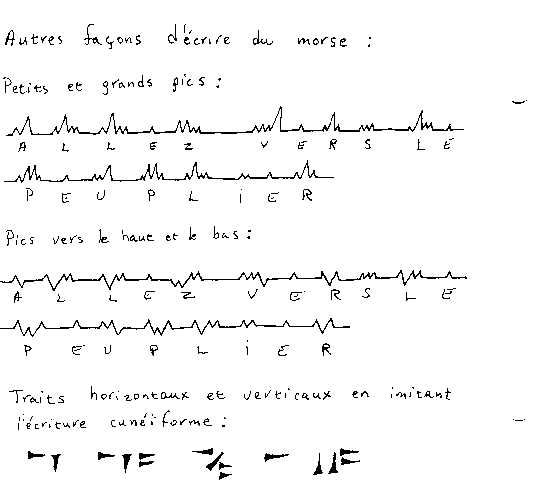 Autres façons d'écrire du morse :
Petits et grands pics :
A L L E Z V E R S L E
P E U P L i E R
Pics vers le haut et le bas :
A L L E Z V E R S L E
P E U P L i E R
Traits horizontaux et verticaux en imitant
l'écriture cunéiforme :